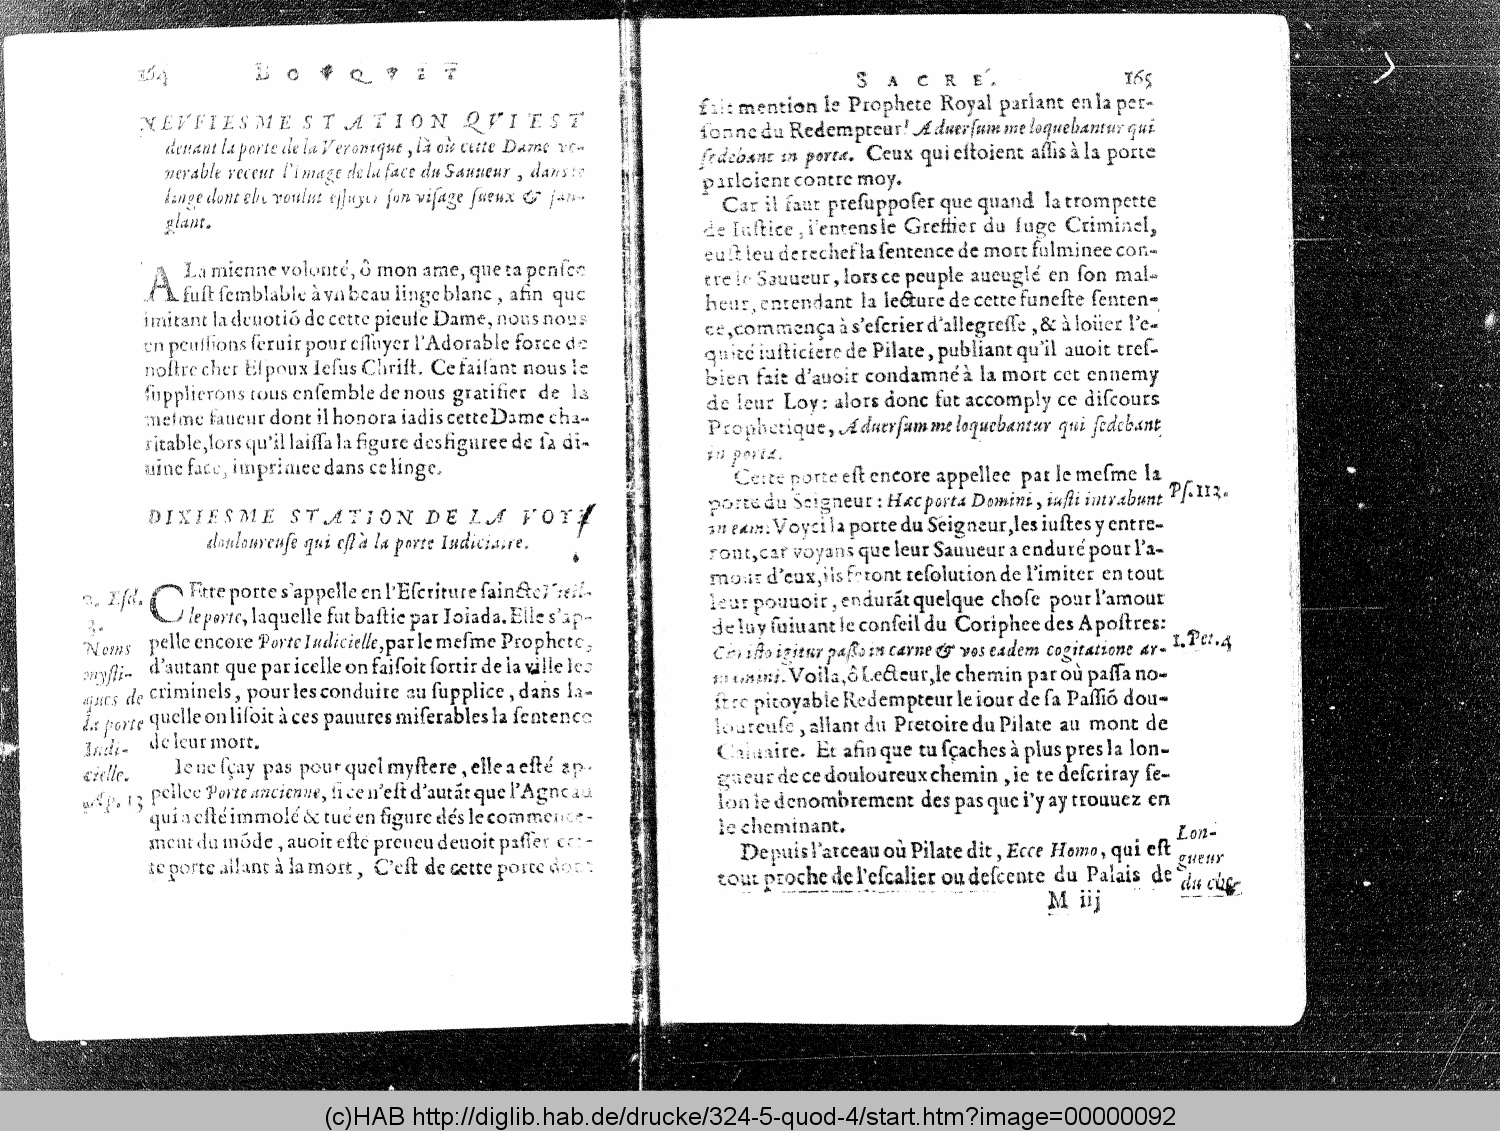 164 BOVQVET
NEVFIESME STATION QVI EST
deuant la porte de la Veronique, là où cette Dame ve-
nerable receut l'image de la face du Sauueur, dans le
linge dont elle voulut essuyer son visage sueux & san-
glant.
A La mienne volonté, ô mon ame, que ta pensee
fust semblable à vn beau linge blanc, afin que
imitant la deuotiõ de cette pieuse Dame, nous nous
en peussions seruir pour essuyer l'Adorable force de
nostre cher Espoux Iesus Christ. Ce faisant nous le
supplierons tous ensemble de nous gratifier de la
mesme faueur dont il honora iadis cette Dame cha-
ritable, lors qu'il laissa la figure desfiguree de sa di-
uine face, imprimee dans ce linge.
DIXIESME STATION DE LA VOYE
douloureuse qui est à la porte Iudiciaire.
2. Esd.
3.
Noms
mysti-
ques de
la porte
Iudi-
cielle.
Ap. 13
CEtte porte s'appelle en l'Escriture saincte Vieil-
le porte, laquelle fut bastie par Ioiada. Elle s'ap-
pelle encore Porte Iudicielle, par le mesme Prophete,
d'autant que par icelle on faisoit sortir de la ville les
criminels, pour les conduire au supplice, dans la-
quelle on lisoit à ces pauures miserables la sentence
de leur mort.
Ie ne sçay pas pour quel mystere, elle a esté ap-
pellee Porte ancienne, si ce n'est d'autãt que l'Agneau
qui a esté immolé & tué en figure dés le commence-
ment du mõde, auoit esté preueu deuoit passer cet-
te porte allant à la mort, C'est de cette porte dont
SACRÉ. 165
fait mention le Prophete Royal parlant en la per-
sonne du Redempteur! Aduersum me loquebantur qui
sedebant in porta. Ceux qui estoient assis à la porte
parloient contre moy.
Car il faut presupposer que quand la trompette
de Iustice, i'entens le Greffier du Iuge Criminel,
eust leu derechef la sentence de mort fulminee con-
tre le Sauueur, lors ce peuple aueuglé en son mal-
heur, entendant la lecture de cette funeste senten-
ce, commença à s'escrier d'allegresse, & à loüer l'e-
quité iusticiere de Pilate, publiant qu'il auoit tres-
bien fait d'auoir condamné à la mort cet ennemy
de leur Loy: alors donc fut accomply ce discours
Prophetique, Aduersum me loquebantur qui sedebant
in porta.
Cette porte est encore appellee par le mesme la
porte du Seigneur: Hæc porta Domini, iusti intrabunt
in eam. Voyci la porte du Seigneur, les iustes y entre-
ront, car voyans que leur Sauueur a enduré pour l'a-
mour d'eux, ils feront resolution de l'imiter en tout
leur pouuoir, endurãt quelque chose pour l'amour
de luy suiuant le conseil du Coriphee des Apostres:
Christo igitur passo in carne & vos eadem cogitatione ar-
mamini. Voila, ô Lecteur, le chemin par où passa no-
stre pitoyable Redempteur le iour de sa Passiõ dou-
loureuse, allant du Pretoire du Pilate au mont de
Caluaire. Et afin que tu sçaches à plus pres la lon-
gueur de ce douloureux chemin, ie te descriray se-
lon le denombrement des pas que i'y ay trouuez en
le cheminant.
Depuis l'arceau où Pilate dit, Ecce Homo, qui est
tout proche de l'escalier ou descente du Palais de
Ps. 113.
1. Pet. 4
Lon-
gueur
du che-
M iij
(c)HAB http://diglib.hab.de/drucke/324-5-quod-4/start.htm?image=00000092